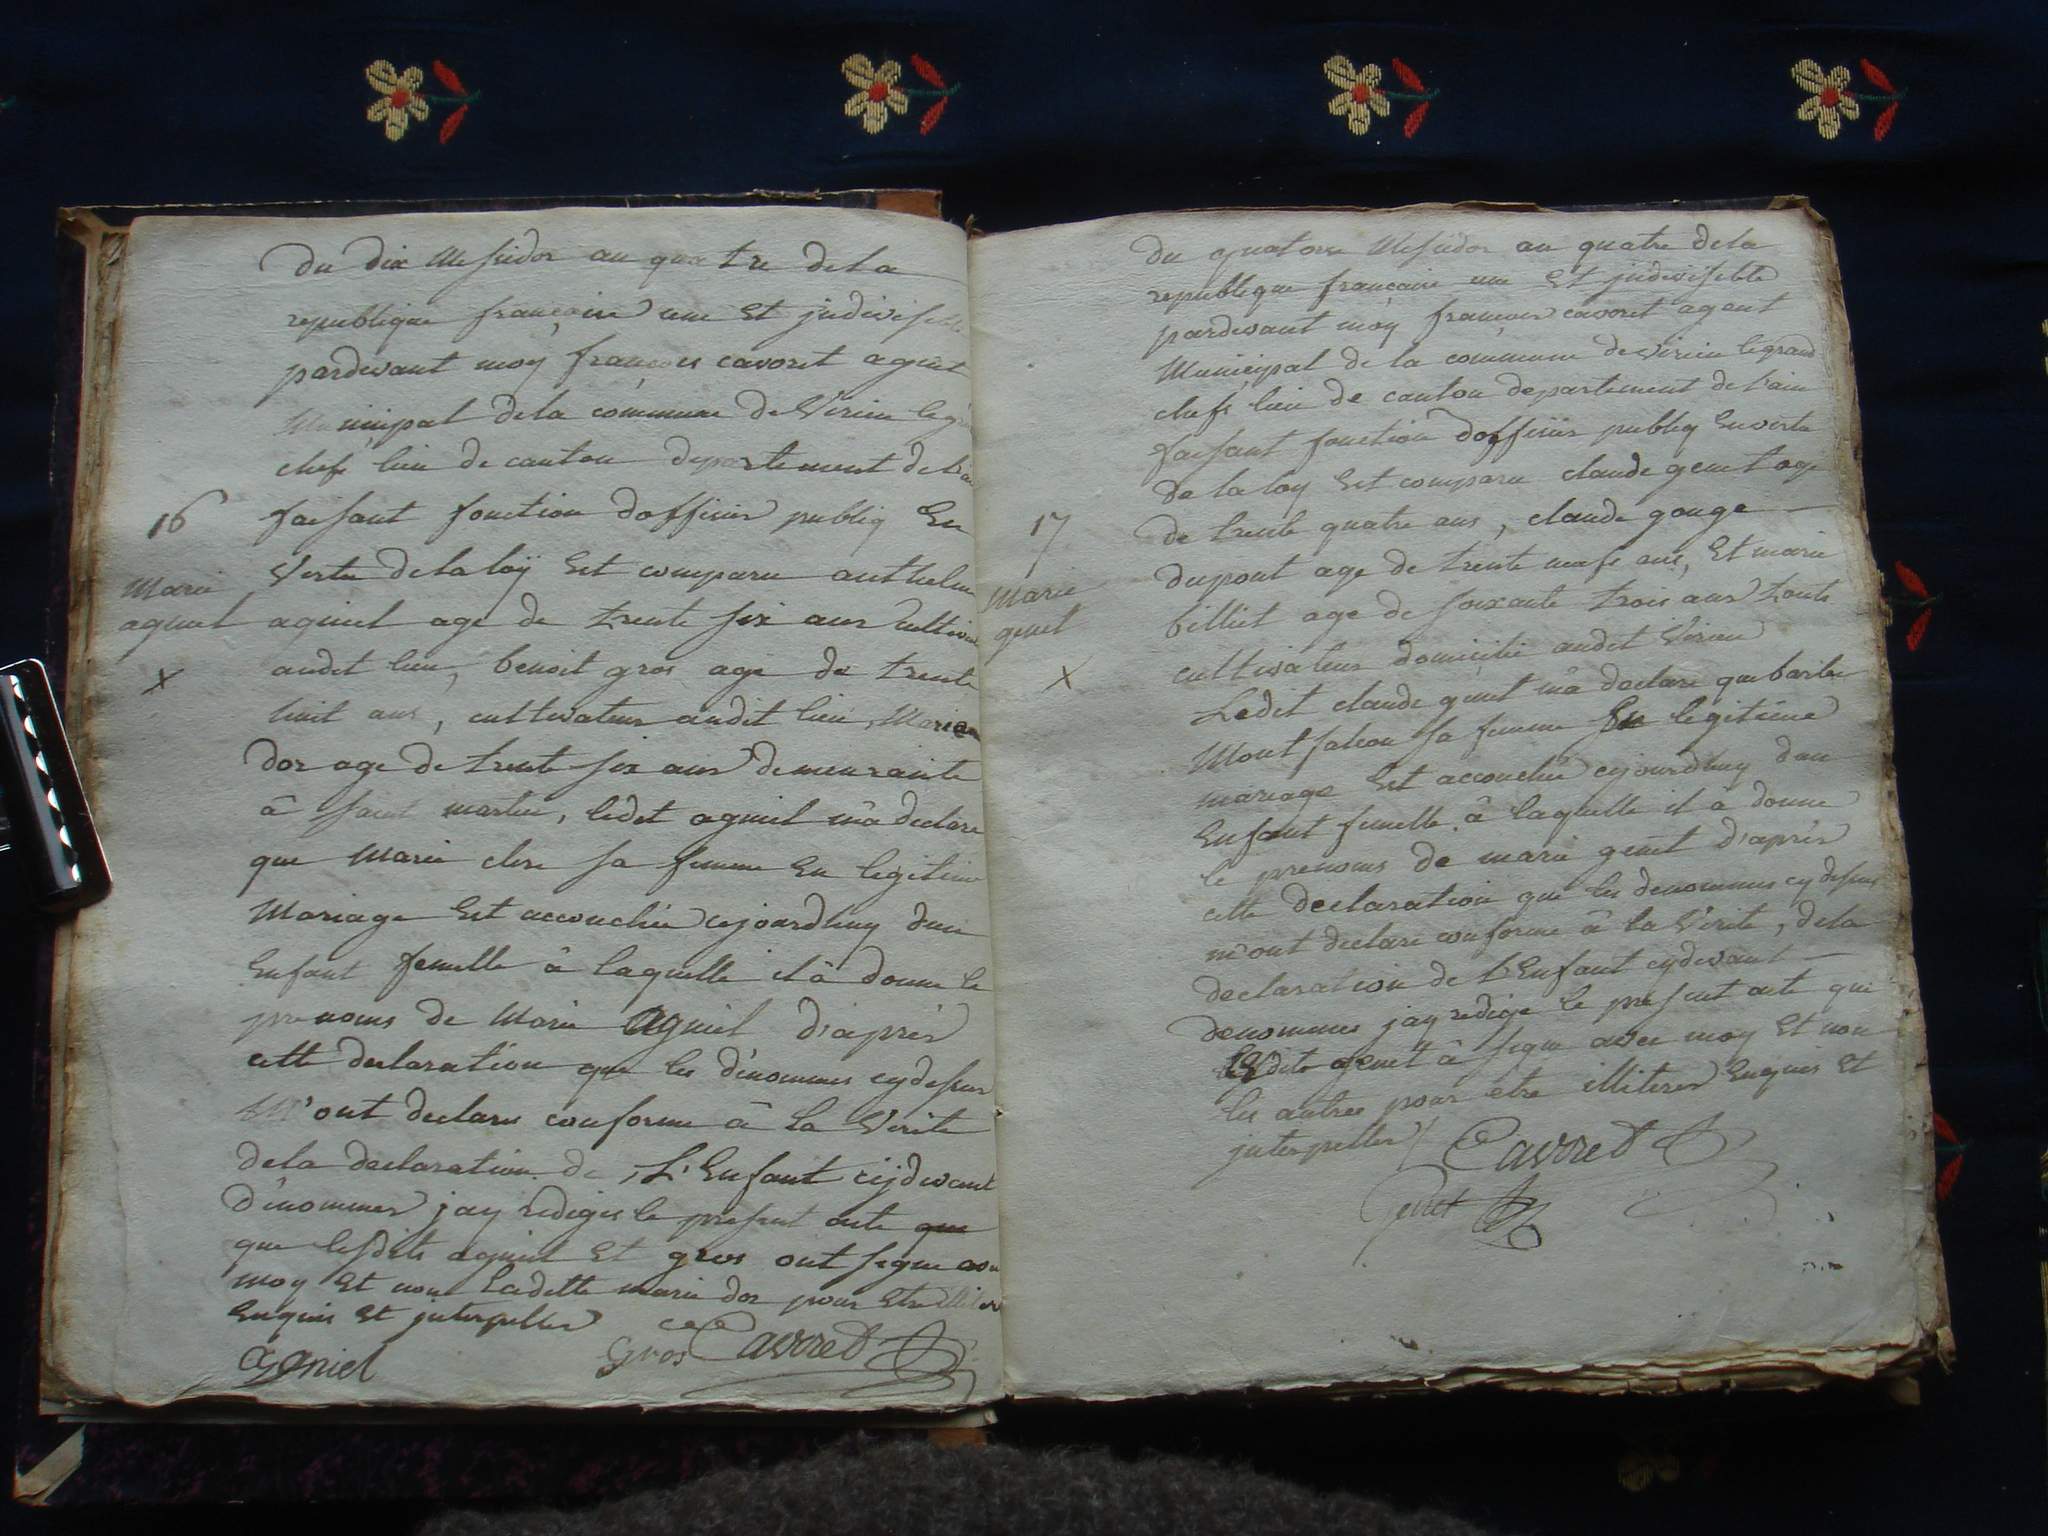 du dix Messidor an quatre de la
republique francaise une et jndivisible
pardevant moÿ françois cavoret agent
Municipal de la commune de Virieu legrand
chefs lieu de canton departement de l'ain
16
faisant fonction dofficier publiq En
Marie
Vertu de la loÿ Est comparu anthelme
agniel
agniel age de trente six ans cultivateur
x
audit lieu, benoit gros age de trente
huit ans, cultivateur audit lieu, Marie
dor age de trente six ans demeurante
â saint martin, ledit agniel mâ declare
que Marie clere sa femme En legitime
Mariage Est accouchée cejourdhuy dun
Enfant femelle â laquelle il â donne le
prenoms de Marie agniel d'après
cette declaration que les dénommes cydessus
M'ont declare conforme â la Verite
dela declaration de L'Enfant cijdevant
dénommes jay rediger le present acte que
que lesdits agniel Et gros ont signe avec
moy Et non Ladette marie dor pour Etre illiter
Enquis Et jnterpelles
agniel gros Cavoret
du quatorze Messidor an quatre dela
republique francaise une Et jndivisible
pardevant môy françois cavoret agent
Municipal de la commune de Virieu legrand
chefs lieu de canton departement de l'ain
faisant fonction dofficier publiq En vertu
de la loy Est comparu claude genet age
17
de trente quatre ans, claude gouge
Marie
dupont age de trente neufs ans, Et marie
genet
billiet age de soixante trois ans touts
x
cultivateur domicilié audit Virieu
Ledit claude genet mâ declare que barbe
Montfalcon sa femme En legitime
mariage Est accouchée cejourdhuy dun
Enfant femelle â laquelle il â donne
le prenoms de marie genet d'après
cette declaration que les denommes cy dessus
m'ont declare conforme â la Verite, dela
declaration de L'Enfant cydevant
denommes jay redige le present acte que
ledit genet â signe avec moy Et non
les autres pour etre illiteres Enquis Et
jnterpelles / Cavoret
Genet